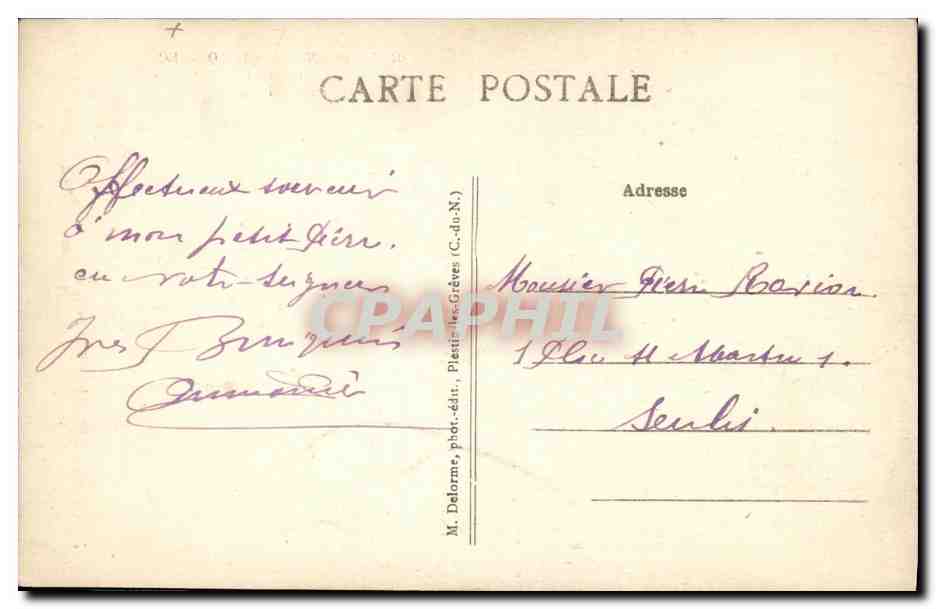 CARTE POSTALE
Affectueux souvenir
à mon petit Pierre.
en notre Seigneur
Yves
M. Delorme, phot.-édit., Plestin-les-Grèves (C.-du-N.)
Adresse
Monsieur Pierre
1 Place St Martin 1.
Senlis.
CPAPHIL